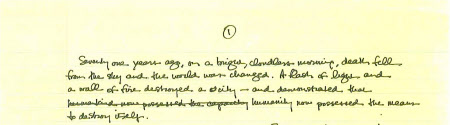 ①
Seventy one years ago, on a bright, cloudless morning, death fell
from the sky and the world was changed. A flash of light and
a wall of fire destroyed a city – and demonstrated that
humankind now possessed the capacity humanity now possessed the means
to destroy itself.